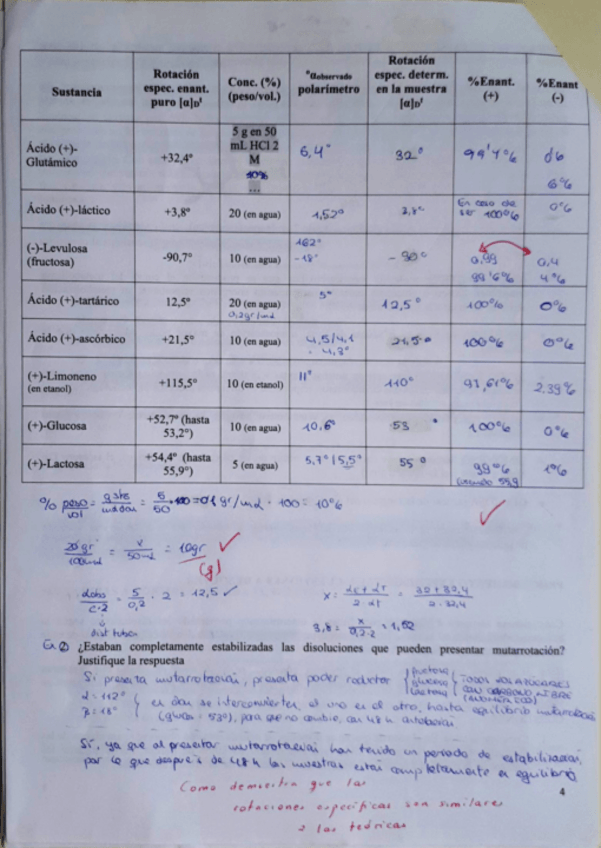 Sustancia Rotación espec. enant. puro [α]Dᵗ Conc. (%) (peso/vol.) °αobservado polarímetro Rotación espec. determ. en la muestra [α]Dᵗ %Enant. (+) %Enant (-)
Ácido (+)-Glutámico +32,4º 5 g en 50 mL HCl 2 M 10% ... 6,4° 32° 99'4% 6%
Ácido (+)-láctico +3,8º 20 (en agua) 1,52° 3,8° En caso de ser 100% 0%
(-)-Levulosa (fructosa) -90,7º 10 (en agua) 162° -18° -90° 0,99 99'6% 0,4 4%
Ácido (+)-tartárico 12,5º 20 (en agua) 0,2gr/ml 5° 12,5° 100% 0%
Ácido (+)-ascórbico +21,5º 10 (en agua) 4,5/4,1 4,3° 21,5° 100% 0%
(+)-Limoneno (en etanol) +115,5º 10 (en etanol) 11° 110° 93,61% 2.39%
(+)-Glucosa +52,7º (hasta 53,2º) 10 (en agua) 10,6° 53° 100% 0%
(+)-Lactosa +54,4º (hasta 55,9º) 5 (en agua) 5,7°/5,5° 55° 99% 1%
% peso/vol = g sto/ml don = 5/50 = 0'1 gr/ml · 100 = 10%
20 gr/100ml = x/50ml = 10gr
(g)
αobs/c·2 = 5/0,2 · 2 = 12,5
3,8 = x/0,2·2 = 1,52
2) ¿Estaban completamente estabilizadas las disoluciones que pueden presentar mutarrotación?
Justifique la respuesta
Si presenta mutarrotación, presenta poder reductor fructosa glucosa lactosa TODOS LOS AZÚCARES
α = 112°
β = 18° en disn se interconvierten, el uno en el otro, hasta equilibrio
(gluc = 53°), para que no cambie, con 48 h
Sí, ya que al presentar mutarrotación han tenido un período de estabilización,
por lo que después de 48 h las muestras están completamente en equilibrio
Como demuestra que las
rotaciones específicas son similares
a las teóricas
4